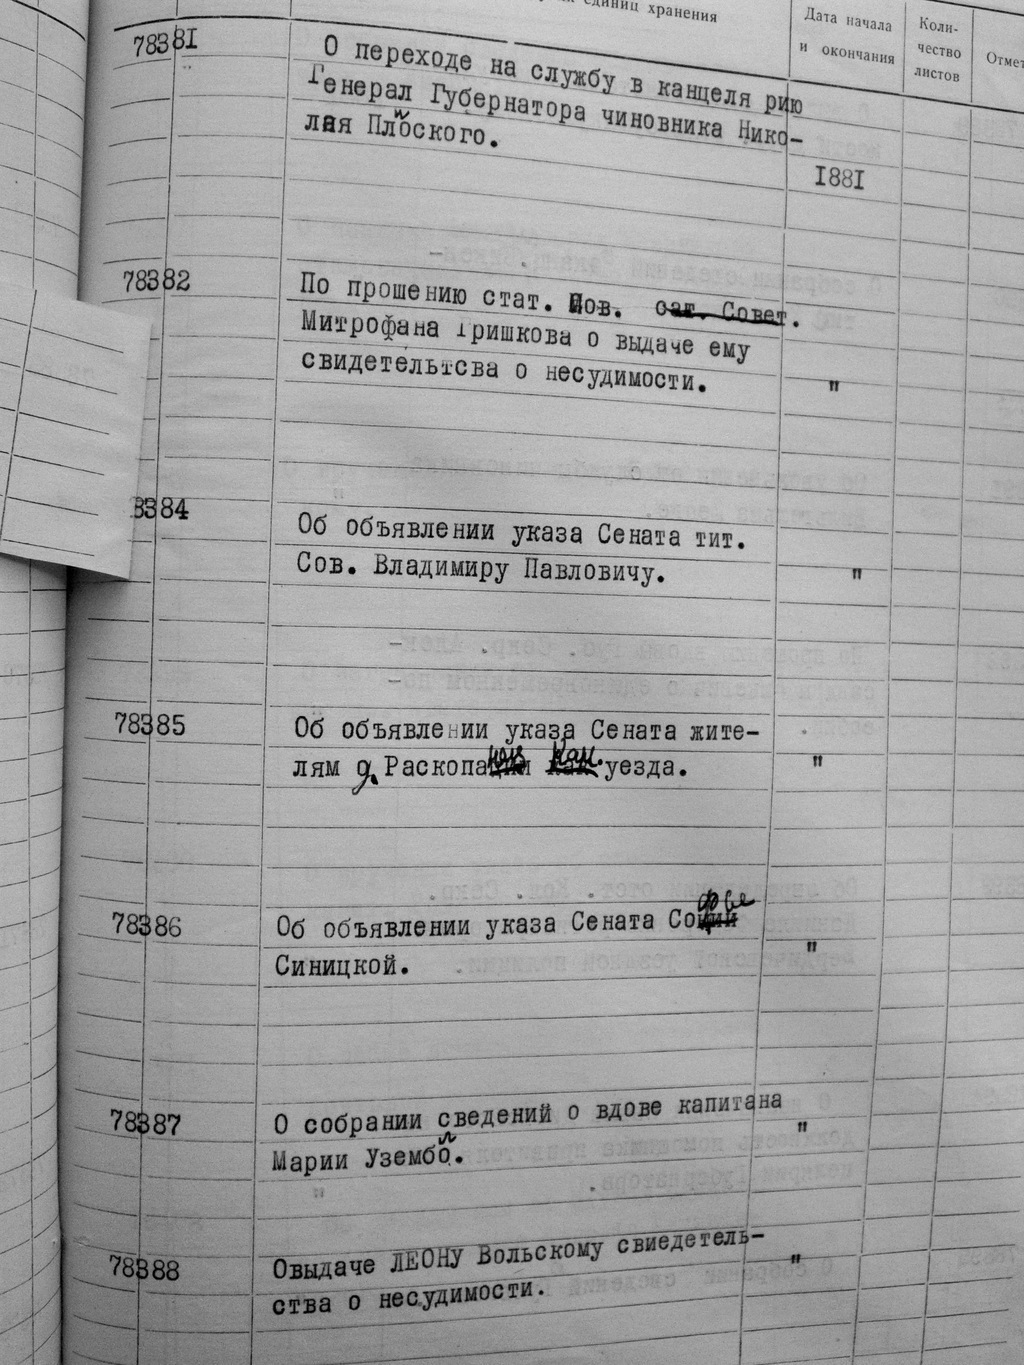 единиц хранения
Дата начала
и окончания
Коли-
чество
листов
Отмет
78381
О переходе на службу в канцеля рию
Генерал Губернатора чиновника Нико-
лая Плоского.
1881
78382
По прошению стат. Сов. сат. Совет.
Митрофана Гришкова о выдаче ему
свидетельтсва о несудимости.
"
8384
Об объявлении указа Сената тит.
Сов. Владимиру Павловичу.
"
78385
Об объявлении указа Сената жите-
лям д. Раскопа Кам. уезда.
"
78386
Об объявлении указа Сената Софье
Синицкой.
"
78387
О собрании сведений о вдове капитана
"
Марии Узембл.
78388
Овыдаче ЛЕОНУ Вольскому свиедетель-
"
ства о несудимости.